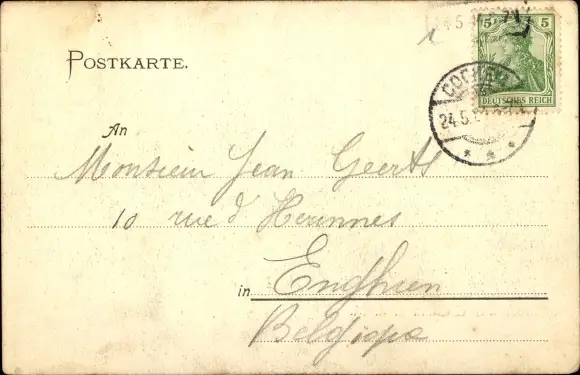 5 5
DEUTSCHES REICH
COCHEM
24.5.
POSTKARTE.
An
Monsieur Jean Geerts
10 rue d Herinnes
in Enghien
Belgique